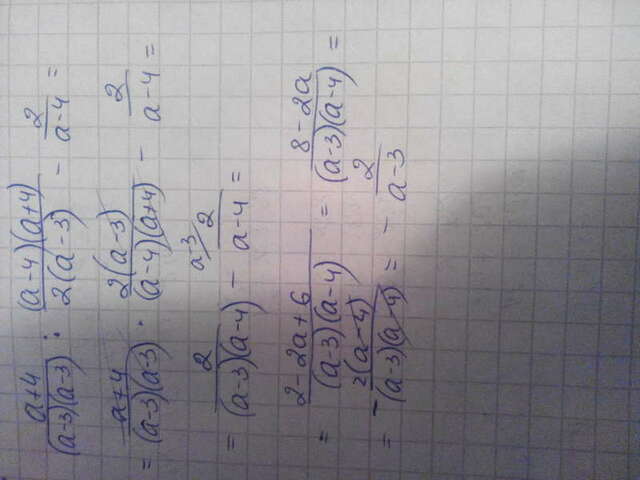 (a+4)/((a-3)(a-3)) : ((a-4)(a+4))/(2(a-3)) - 2/(a-4) =
= (a+4)/((a-3)(a-3)) · (2(a-3))/((a-4)(a+4)) - 2/(a-4) =
= 2/((a-3)(a-4)) - a-3/ 2/(a-4) =
= (2-2a+6)/((a-3)(a-4)) = (8-2a)/((a-3)(a-4)) =
= - (2(a-4))/((a-3)(a-4)) = - 2/(a-3)